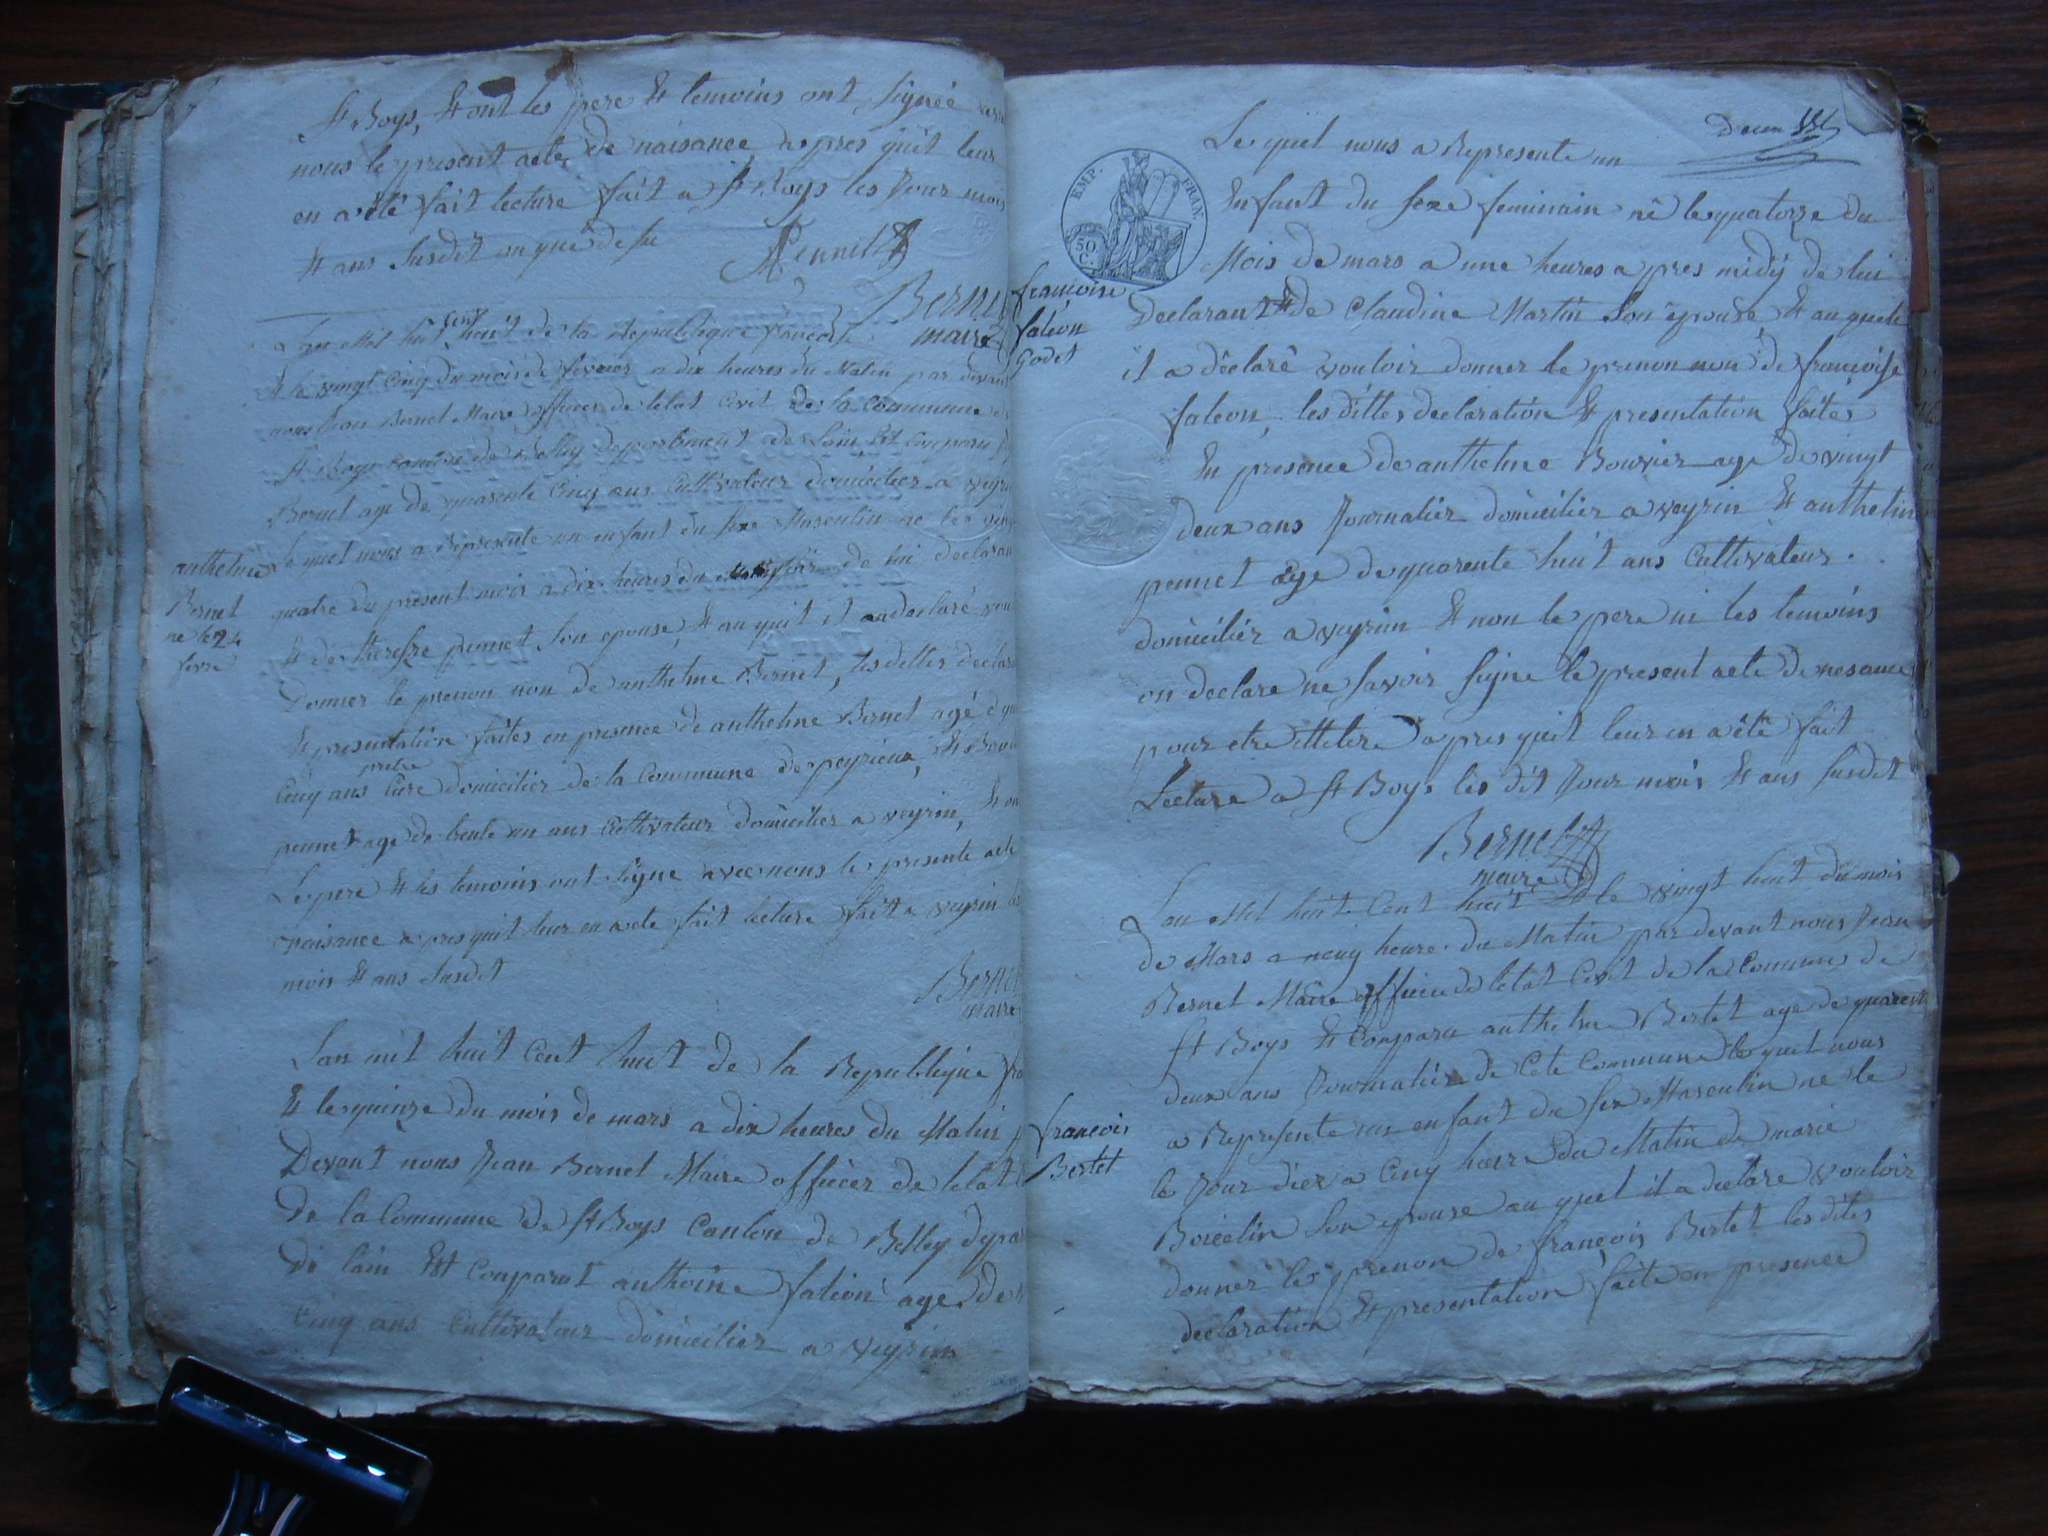 St Boys, Et ont les pere Et temoins ont Signée
nous le present acte de naisance apres quil leur
en a été fait lecture fait a St Boys les Jour mois
Et ans Susdit
Bernet
maire
Lan Mil huit cent huit de la Republique francoise
Et le vingt Cinq du mois de fevrier a dix heures du Matin par devant
nous Jean Bernet Maire officier de letat Civil de la Commune de
St Boys Canton de Belley departement de Lain Est Comparu
Bernet age de quarente Cinq ans Cultivateur domicilier a veyrin
Le quel nous a Represente un enfant du sexe Masculin ne le vingt
quatre du present mois a dix heures du de lui declarant
Et de theresse peunet Son epouse, Et au quel il a declaré
Donner le prenon non de anthelme Bernet, les dittes declara
Et presentation faites en presence de anthelme Bernet agé de
pretre
Cinq ans Cure domicilier de la Commune de peyrieux, Et
peunet age de trente un ans Cultivateur domicilier a veyrin, Et
Le pere Et les temoins ont Signe avec nous le presente acte
naisance apres quil leur en a ete fait lecture fait a veyrin
mois Et ans Susdit
Bernet
maire
anthelme
Bernet
ne le 24
fevre
Lan mil huit Cent huit de la Republique
Et le quinze du mois de mars a dix heures du Matin
Devant nous Jean Bernet Maire officier de letat
de la Commune de St Boys Canton de Belley
de lain Est Comparut anthoine falion age de
Cinq ans Cultivateur domicilier a veyrin
Le quel nous a Represente un
EMP. FRAN.
50 C.
Enfant du sexe feminain né le quatorze du
Mois de mars a une heures apres midÿ de lui
Declarant Et de Claudine Martin Son epouse, Et au quele
il a déclaré vouloir donner le prenon non de francoise
faleon, les dittes declaration Et presentation faites
En presence de anthelme Bouvier age de vingt
deux ans Journalier domicilier a veyrin Et anthelme
peunet age de quarente huit ans Cultivateur
domicilier a veyrin Et non le pere ni les temoins
on declare ne Savoir Signe le present acte de nesance
pour etre illitere apres quil leur en a été fait
Lecture a St Boys les dit Jour mois Et ans Susdit
Bernet
maire
francoise
faleon
Godet
Lan Mil huit Cent huit Et le vingt huit du mois
de Mars a neuf heure du Matin par devant nous Jean
Bernet Maire officie de letat Civil de la Commune de
St Boys Et Comparu anthelme Bertet age de quarente
deux ans Journalier de Cete Commune le quel nous
a Represente un enfant du sex Masculin ne le
le Jour dier a Cinq heure du Matin de marie
Boicelin Son epouse au quel il a declare vouloir
donner les prenon de françois Bertet les dites
declaration Et presentation faite en presence
francois
Bertet